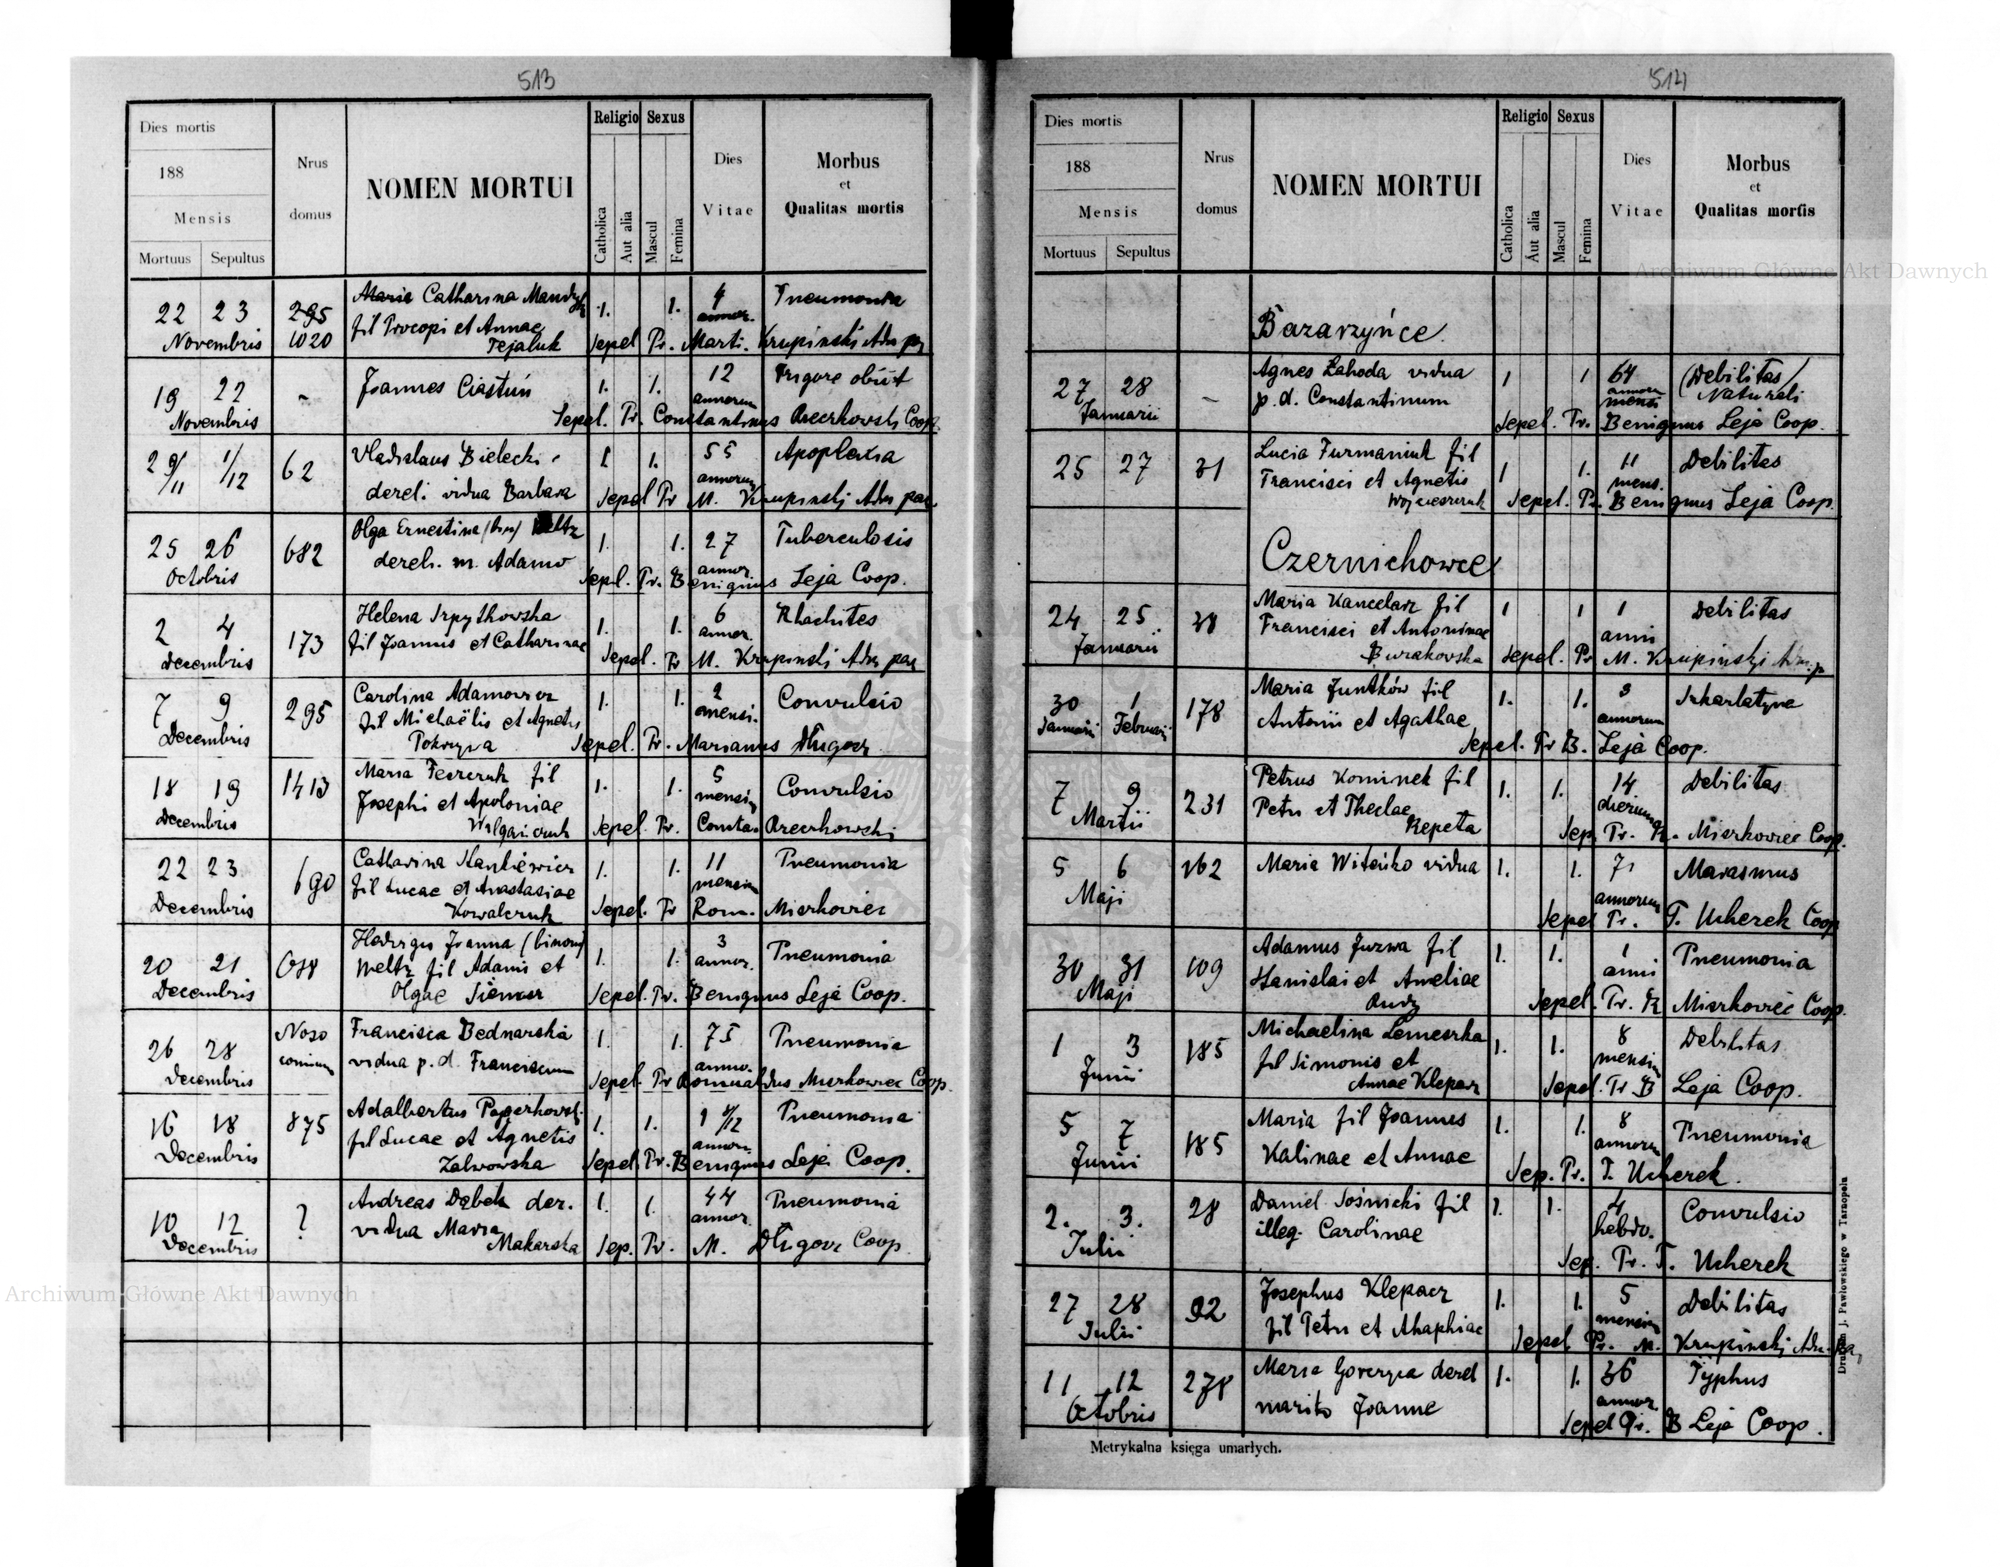 513
Dies mortis
188
Mensis
Mortuus Sepultus
Nrus
domus
NOMEN MORTUI
Religio Sexus
Catholica
Aut alia
Mascul
Femina
Dies
Vitae
Morbus
et
Qualitas mortis
22 23 295 Maria Catharina 1. 1. 4 Pneumonia
fil Procopi et Annae annor.
Novembris 1020 Tejaluk Sepel Pr. Marti. Krupinski Adm par
19 22 ~ Joannes Ciastuń 1. 1. 12 Frigore obiit
annorum
Novembris Sepel. Pr. Constantinus Coop.
29/11 1/12 62 Vladislaus Bielecki 1 1. 55 Apoplexia
annorum
derel. vidua Barbara Sepel Pr M. Krupinski Adm par
25 26 682 Olga Ernestina (bin) Weltz 1. 1. 27 Tuberculosis
annor.
Octobris derel. m. Adamo Sepl. Pr. Benignus Leja Coop.
2 4 173 Helena 1. 1. 6 Rhachites
annor.
Decembris fil Joannis et Catharinae Sepel. Pr M. Krupinski Adm par
7 9 295 Carolina Adamowicz 1. 1. 2 Convulsio
fil Michaëlis et Agnetis mensi.
Decembris Sepel. Pr. Marianus Długosz
18 19 1413 Maria fil 1. 1. 5 Convulsio
Josephi et Apoloniae mensiu
Decembris Sepel. Pr. Constan
22 23 690 Catharina Stankiewicz 1. 1. 11 Pneumonia
fil Lucae et Anastasiae mensium
Decembris Kowalczuk Sepel. Pr Rom. Mierkowiec
20 21 Hedvigis Joanna (binom) 1. 1. 3 Pneumonia
Weltz fil Adami et annor.
Decembris Olgae Sepel. Pr. Benignus Leja Coop.
26 28 Noso Francisca Bednarska 1. 1. 75 Pneumonia
comium vidua p. d. Franciscum annor.
Decembris Sepel. Pr Romualdus Mierkowiec Coop.
16 18 875 Adalbertus 1. 1. Pneumonia
fil Lucae et Agnetis annor.
Decembris Zalwowska Sepel. Pr. Benignus Leja Coop.
10 12 ? Andreas Dąbek der. 1. 1. 44 Pneumonia
vidua Maria annor.
Decembris Makarska Sep. Pr. M. Długosz Coop.
514
Dies mortis
188
Mensis
Mortuus Sepultus
Nrus
domus
NOMEN MORTUI
Religio Sexus
Catholica
Aut alia
Mascul
Femina
Dies
Vitae
Morbus
et
Qualitas mortis
Bazarzyńce.
27 28 ~ Agnes Lahoda vidua 1 1 64 Debilitas
Januarii p. d. Constantinum annoru Naturali
Sepel. Pr. Benignus Leja Coop.
25 27 31 Lucia Furmaniuk fil 1 1. 11 Debilitas
Francisci et Agnetis mens.
Sepel. Pr. Benignus Leja Coop.
Czernichowce
24 25 38 Maria Kancelarz fil 1 1 1 Debilitas
Francisci et Antoninae anni
Januarii Burakowska Sepel. Pr M. Krupinski Adm.p
30 1 178 Maria Juntków fil 1. 1. 3 Szkarlatyna
Januarii Februarii Antonii et Agathae annorum
Sepel. Pr B. Leja Coop.
7 9 231 Petrus Kominek fil 1. 1. 14 Debilitas
Martii Petri et Theclae dierum
Repeta Sep. Pr. R. Mierkowiec Coop.
5 6 162 Maria Witeńko vidua 1. 1. 71 Marasmus
Maji annorum
Sepel Pr. T. Ucherek Coop
30 31 109 Adamus Juzwa fil 1. 1. 1 Pneumonia
Maji Stanislai et Ameliae anni
Sepel. Pr. R Mierkowiec Coop.
1 3 185 Michaelina Lemeszka 1. 1. 8 Debilitas
fil Simonis et mensiu
Junii Annae Klepacz Sepel. Pr. B Leja Coop.
5 7 185 Maria fil Joannes 1. 1. 8 Pneumonia
Junii Kalinae et Annae annorum
Sep. Pr. T. Ucherek.
2. 3. 28 Daniel Sośnicki fil 1. 1. 4 Convulsio
Julii illeg. Carolinae hebdo.
Sep. Pr. T. Ucherek
27 28 92 Josephus Klepacz 1. 1. 5 Debilitas
Julii fil Petri et Ahaphiae mensium
Sepel Pr. M. Krupinski Adm. pa,
11 12 278 Maria derel 1. 1. 36 Typhus
Octobris marito Joanne annor.
Sepel Pr. B Leja Coop.
Metrykalna księga umarłych.
Drukiem J. Pawłowskiego w Tarnopolu
Archiwum Główne Akt Dawnych
Archiwum Główne Akt Dawnych